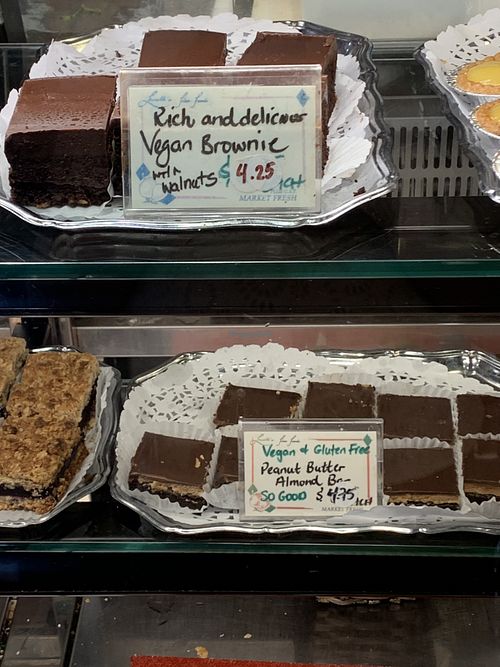 Rich and delicious
Vegan Brownie
with
walnuts $ 4.25 /CH
MARKET FRESH
Vegan & Gluten Free
Peanut Butter
Almond Br--
SO GOOD $ 4.75 /CH
MARKET FRESH